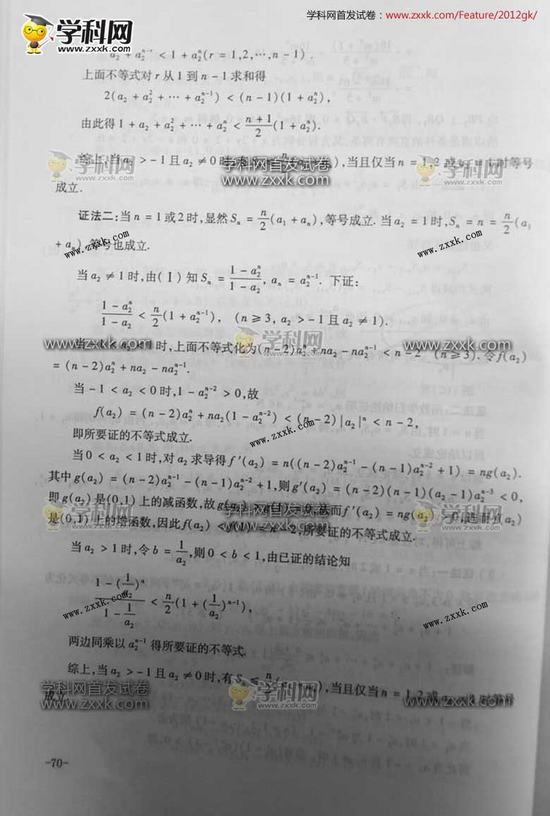 学科网首发试卷：www.zxxk.com/Feature/2012gk/
学科网
www.zxxk.com
a₂ʳ + a₂ⁿ⁻ʳ < 1 + a₂ⁿ (r = 1,2,⋯,n − 1).
上面不等式对 r 从 1 到 n − 1 求和得
2(a₂ + a₂² + ⋯ + a₂ⁿ⁻¹) < (n − 1)(1 + a₂ⁿ),
由此得 1 + a₂ + a₂² + ⋯ + a₂ⁿ < (n + 1)/2 (1 + a₂ⁿ).
综上,当 a₂ > −1 且 a₂ ≠ 0 时,当且仅当 n = 1,2 或 a₂ = 1 时等号
成立.
证法二:当 n = 1 或 2 时,显然 Sₙ = n/2 (a₁ + aₙ),等号成立. 当 a₂ = 1 时, Sₙ = n = n/2 (a₁
+ aₙ) ,等号也成立.
当 a₂ ≠ 1 时,由(Ⅰ)知 Sₙ = (1 − a₂ⁿ)/(1 − a₂), aₙ = a₂ⁿ⁻¹. 下证:
(1 − a₂ⁿ)/(1 − a₂) < n/2 (1 + a₂ⁿ⁻¹), (n ≥ 3, a₂ > −1 且 a₂ ≠ 1).
当 −1 < a₂ < 1 时,上面不等式化为 (n − 2)a₂ⁿ + na₂ − na₂ⁿ⁻¹ < n − 2 (n ≥ 3). 令 f(a₂)
= (n − 2)a₂ⁿ + na₂ − na₂ⁿ⁻¹.
当 −1 < a₂ < 0 时, 1 − a₂ⁿ⁻² > 0,故
f(a₂) = (n − 2)a₂ⁿ + na₂(1 − a₂ⁿ⁻²) < (n − 2)|a₂|ⁿ < n − 2,
即所要证的不等式成立.
当 0 < a₂ < 1 时,对 a₂ 求导得 f′(a₂) = n((n − 2)a₂ⁿ⁻¹ − (n − 1)a₂ⁿ⁻² + 1) = ng(a₂).
其中 g(a₂) = (n − 2)a₂ⁿ⁻¹ − (n − 1)a₂ⁿ⁻² + 1,则 g′(a₂) = (n − 2)(n − 1)(a₂ − 1)a₂ⁿ⁻³ < 0,
即 g(a₂) 是(0,1) 上的减函数,故 g(a₂) > g(1) = 0,从而 f′(a₂) = ng(a₂)
是(0,1) 上的增函数,因此 f(a₂) < f(1) = n − 2,所要证的不等式成立.
当 a₂ > 1 时,令 b = 1/a₂,则 0 < b < 1,由已证的结论知
(1 − (1/a₂)ⁿ)/(1 − 1/a₂) < n/2 (1 + (1/a₂)ⁿ⁻¹),
两边同乘以 a₂ⁿ⁻¹ 得所要证的不等式.
综上,当 a₂ > −1 且 a₂ ≠ 0 时,有 Sₙ ≤ n/2,当且仅当 n = 1,2 或
成立.
学科网首发试卷
www.zxxk.com
-70-